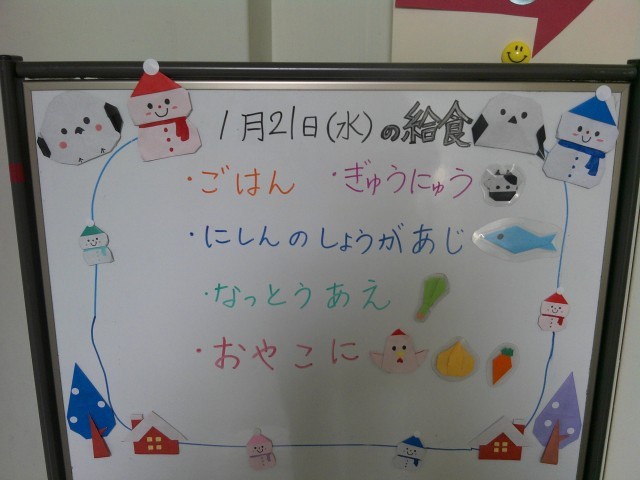 1月21日(水)の給食
・ごはん ・ぎゅうにゅう
・にしんのしょうがあじ
・なっとうあえ
・おやこに